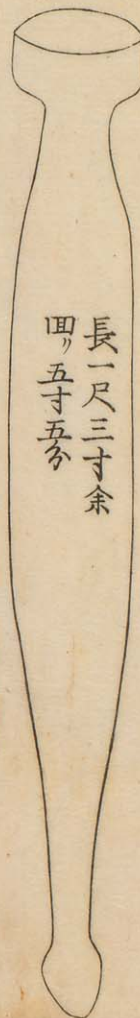 長一尺三寸余
囬リ五寸五分